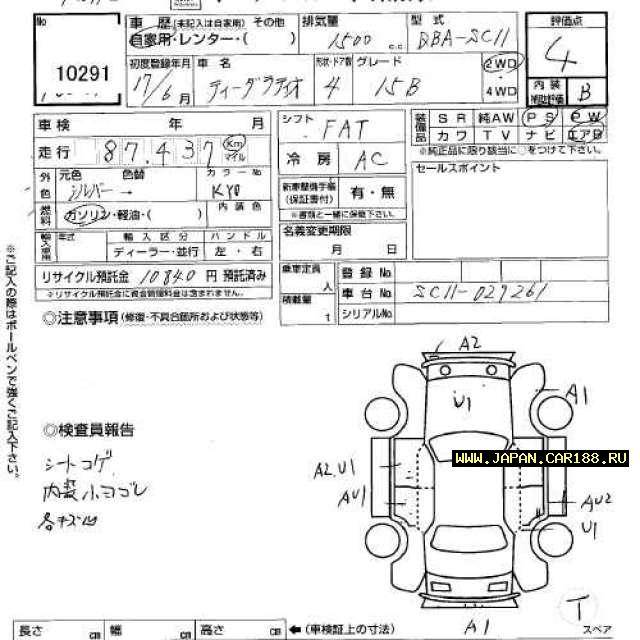 No 10291
車歴 (未記入は自家用) その他
自家用・レンター・( )
排気量 1500 c.c
型式 DBA-SC11
評価点 4
内装 補助評価 B
初度登録年月 17/6月
車名 ティーダラティオ
形状・ドア数 4
グレード 15B
2WD
4WD
車検 年 月
シフト FAT
装備品 SR 純AW PS PW
カワ TV ナビ エアB
※純正品に限り該当に○をつけて下さい。
走行 87,437 Km マイル
冷房 AC
セールスポイント
外色 元色 シルバー → 色替
カラーNo KY0
新車整備手帳 (保証書付) 有・無
※書類と一緒に保管下さい。
燃料 ガソリン・軽油・( )
内装色
名義変更期限
月 日
輸入車用 年式 輸入区分 ハンドル
ディーラー・並行 左・右
乗車定員 人
登録No
リサイクル預託金 10840 円 預託済み
車台No SC11-029261
※リサイクル預託金に資金管理料金は含まれません。
積載量 t
シリアルNo
◎注意事項 (修復・不具合箇所および状態等)
※ご記入の際はボールペンで強くご記入下さい。
A2
U1
A1
◎検査員報告
WWW.JAPAN.CAR188.RU
シートコゲ
A2.U1
内装小ヨゴレ
AU1
AU2
各キズ凹
U1
T
スペア
A1
長さ cm 幅 cm 高さ cm ←(車検証上の寸法)